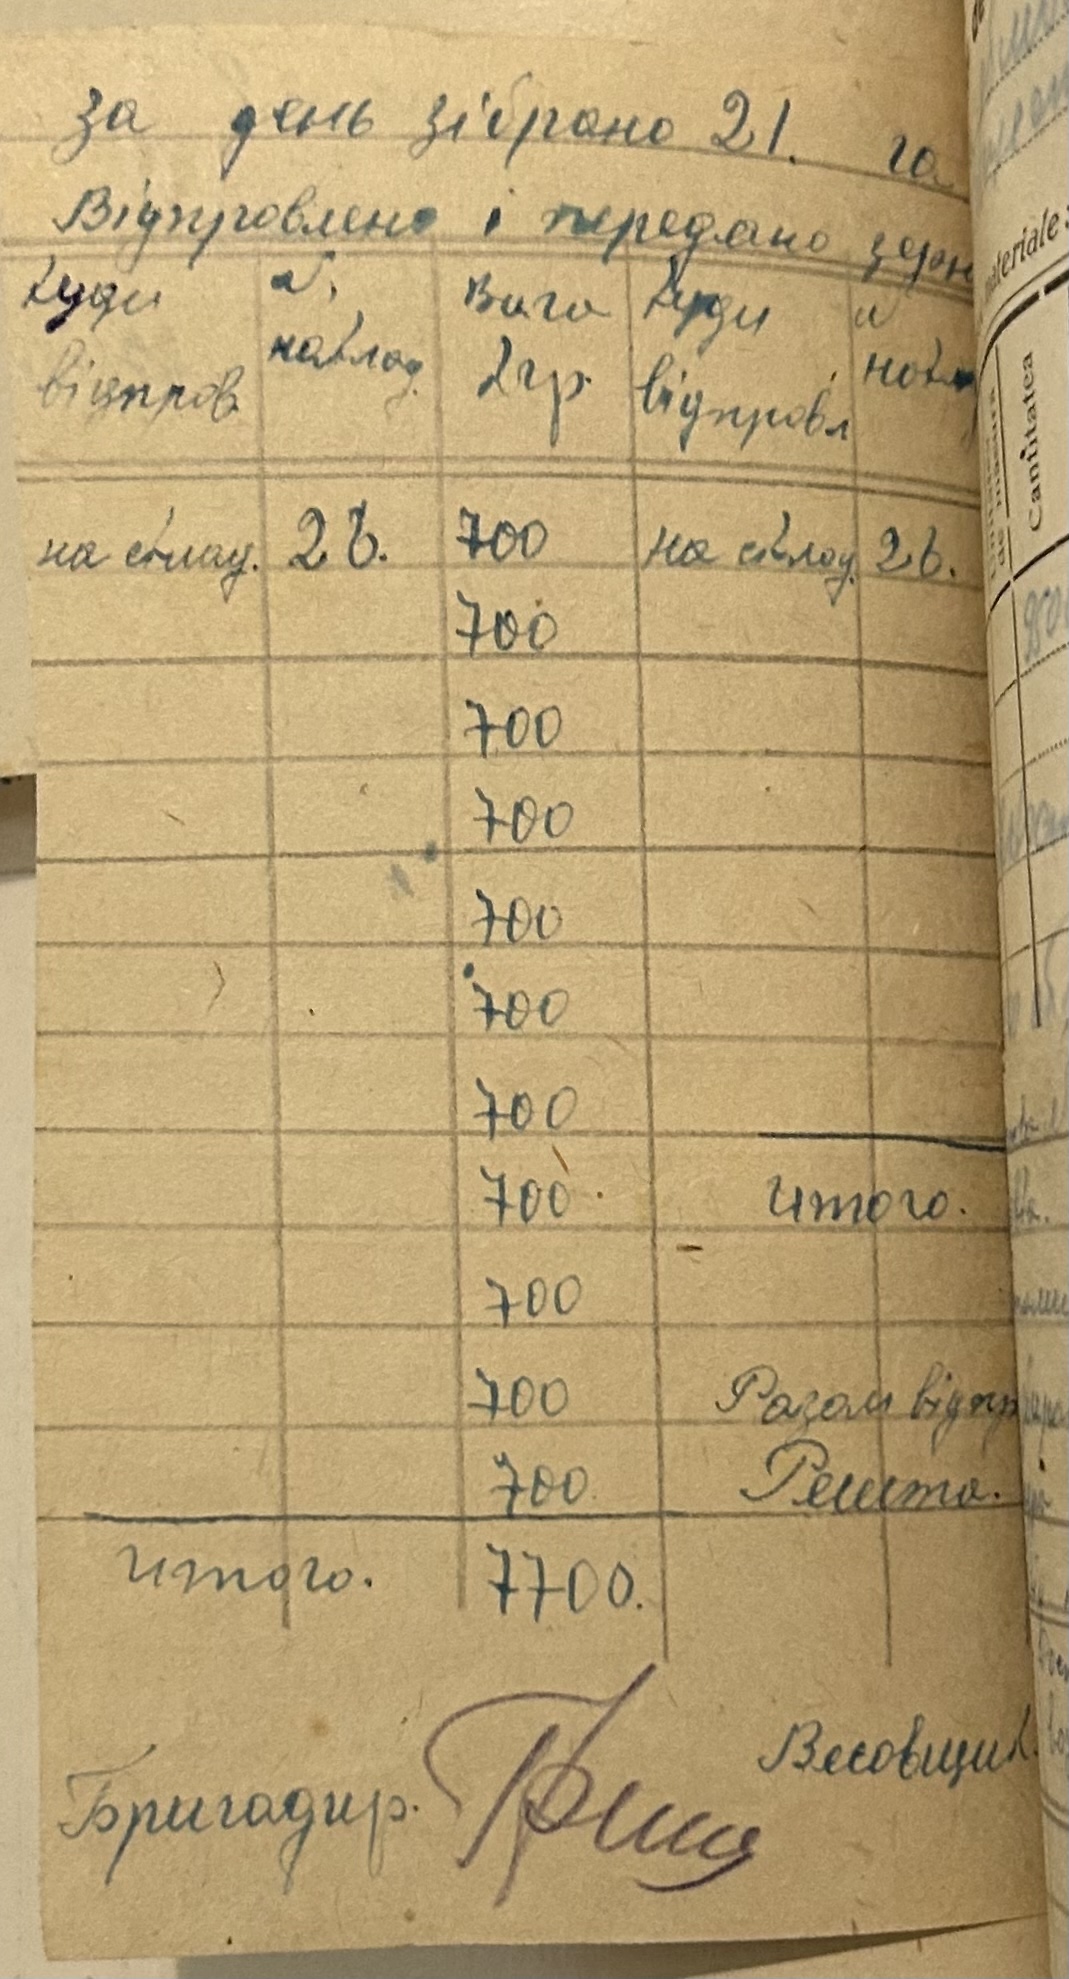 за день зібрано 21. га
Відправлено і передано зерн
Куди відправ. № наклад. Вага Кгр. Куди відправл № накл
на склад. 26. 700 на склад. 26.
700
700
700
700
700
700
700. Итого.
700
700 Разом відпр
700 Решта.
Итого. 7700.
Бригадир. Весовщик.
materiale
Cantitatea
de măsura